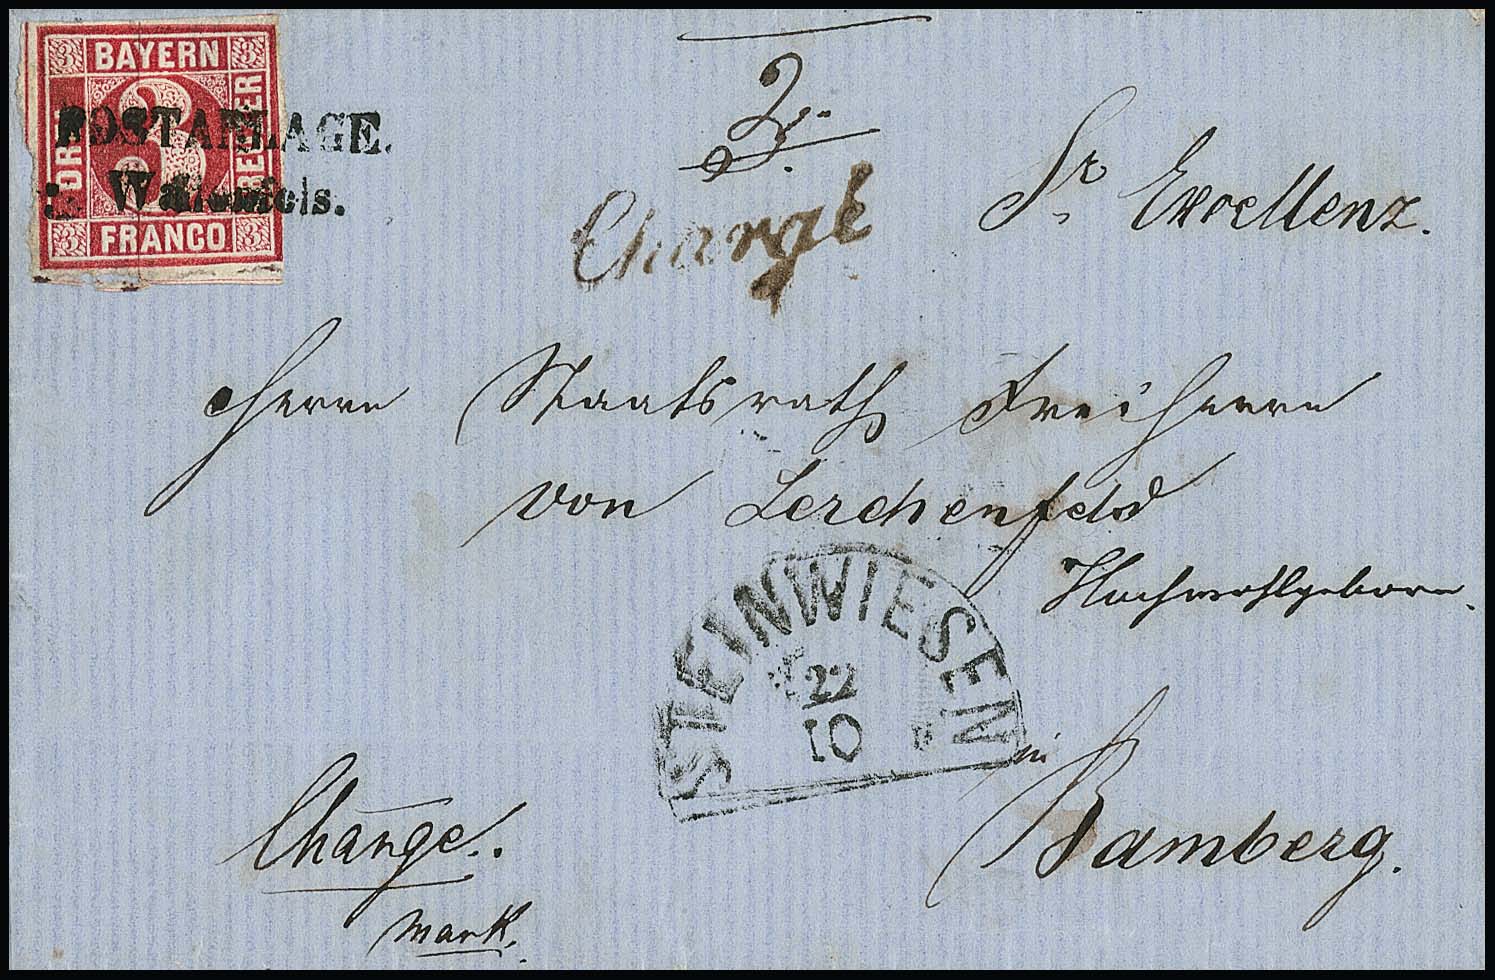 3 BAYERN 3
DREI
3
KREUZER
3 FRANCO 3
POSTABLAGE.
Wallenfels.
2
Chargé
Sr Excellenz.
Herrn Staatsrath Freiherrn
von Lerchenfeld
Hochwohlgeborn.
STEINWIESEN
22
10
in
Bamberg.
Charge.